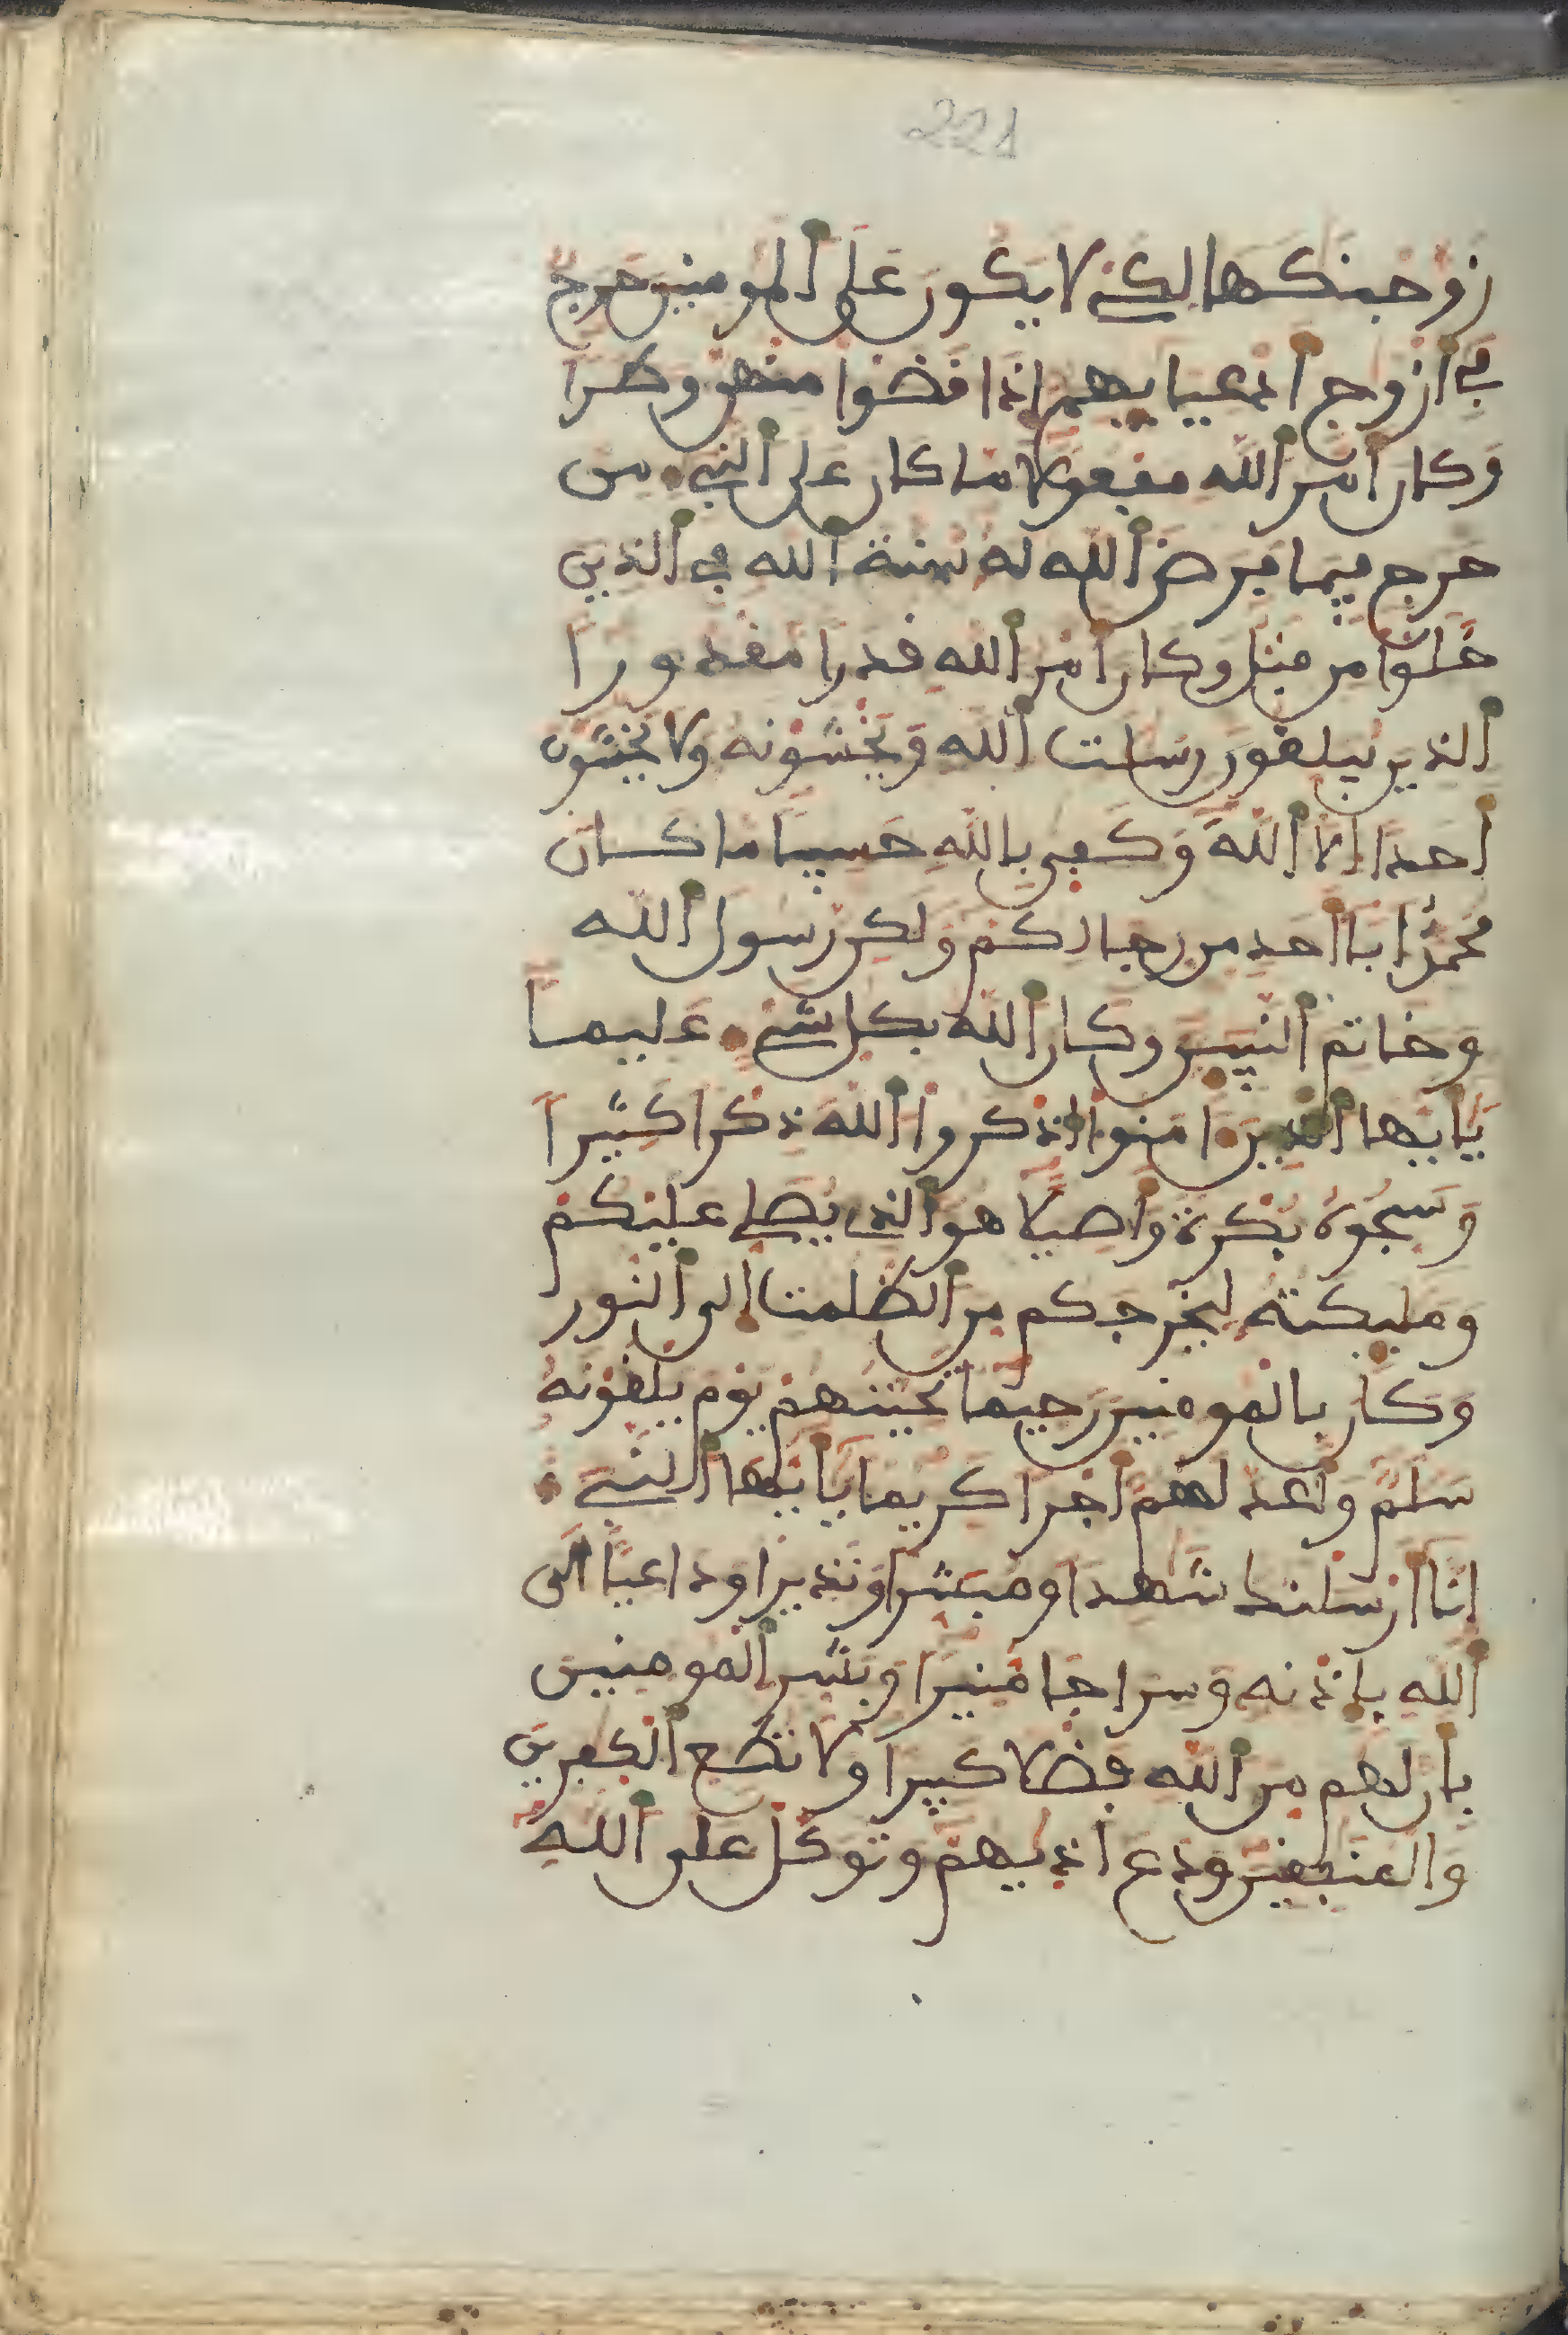 221
زوجنكها لكي لا يكون على المومنين حرج
في أزوج أدعيايهم إذا قضوا منهن وطرا
وكان أمر الله مفعولا ما كان على النبيء من
حرج فيما فرض الله له سنة الله في الذين
خلوا من قبل وكان أمر الله قدرا مقدورا
الذين يبلغون رسلت الله ويخشونه ولا يخشون
أحدا إلا الله وكفى بالله حسيبا ما كان
محمد أبا أحد من رجالكم ولكن رسول الله
وخاتم النبيين وكان الله بكل شيء عليما
يأيها الذين ءامنوا اذكروا الله ذكرا كثيرا
وسبحوه بكرة وأصيلا هو الذي يصلي عليكم
ومليكته ليخرجكم من الظلمت إلى النور
وكان بالمومنين رحيما تحيتهم يوم يلقونه
سلم وأعد لهم أجرا كريما يأيها النبيء
إنا أرسلنك شهدا ومبشرا ونذيرا وداعيا إلى
الله بإذنه وسراجا منيرا وبشر المومنين
بأن لهم من الله فضلا كبيرا ولا تطع الكفرين
والمنفقين ودع أذيهم وتوكل على الله